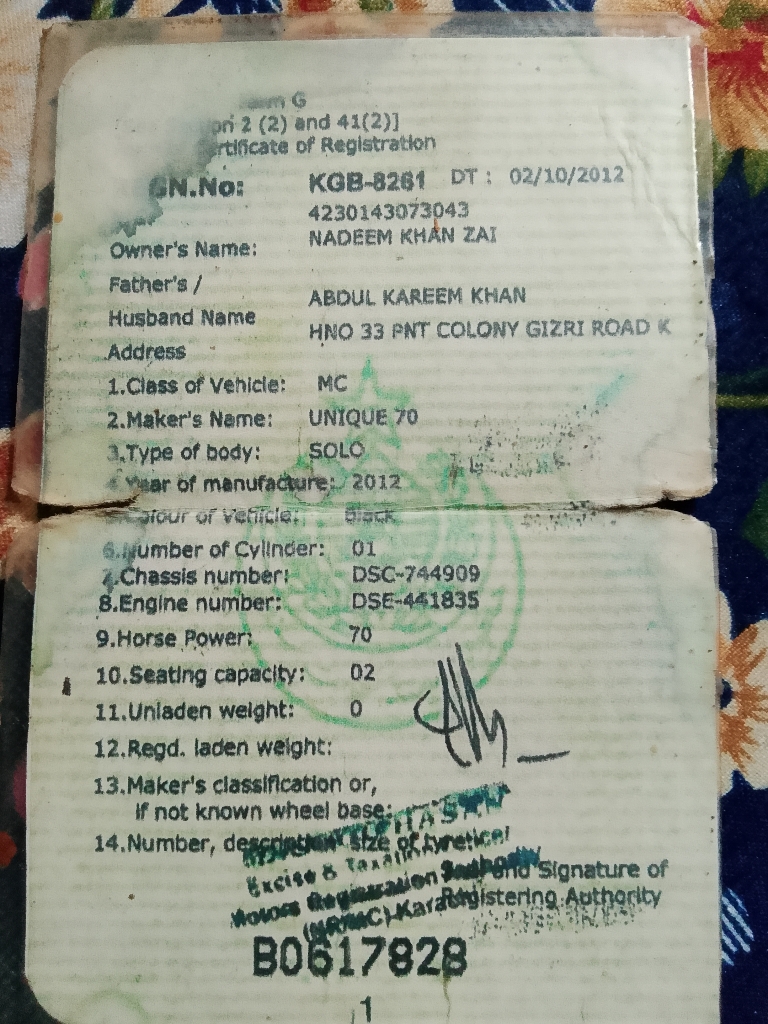 G
on 2 (2) and 41(2)]
ertificate of Registration
GN.No: KGB-8261 DT : 02/10/2012
4230143073043
Owner's Name: NADEEM KHAN ZAI
Father's /
Husband Name ABDUL KAREEM KHAN
Address HNO 33 PNT COLONY GIZRI ROAD K
1.Class of Vehicle: MC
2.Maker's Name: UNIQUE 70
3.Type of body: SOLO
4 Year of manufacture: 2012
5.Colour of Vehicle: Black
6.Number of Cylinder: 01
7.Chassis number: DSC-744909
8.Engine number: DSE-441835
9.Horse Power: 70
10.Seating capacity: 02
11.Unladen weight: 0
12.Regd. laden weight:
13.Maker's classification or,
if not known wheel base:
14.Number, description size of
Excise & Taxation
Motors Registration Authority
and Signature of
Registering Authority
B0617828
1